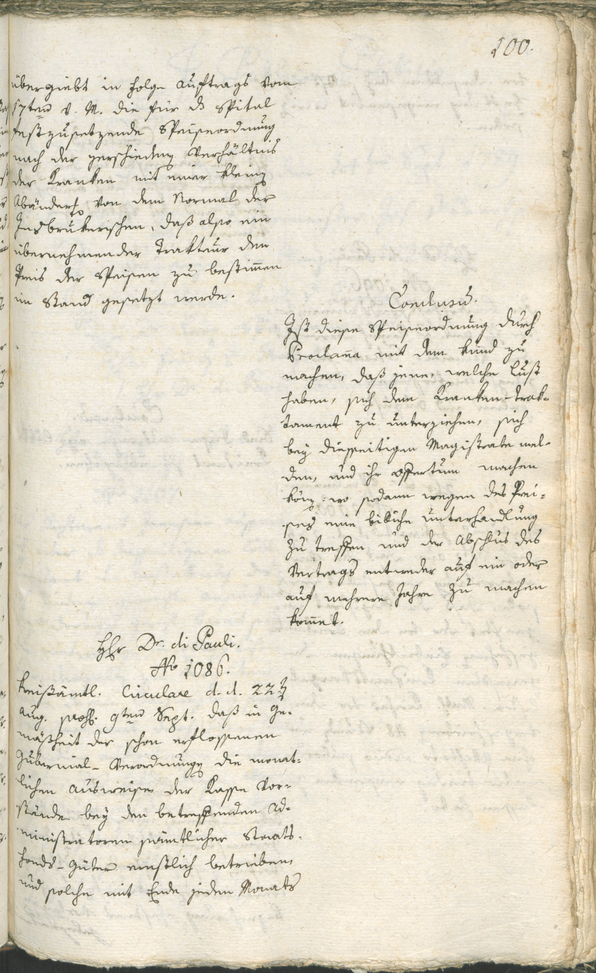 100.
übergiebt in Folge Auftrags vom
17ten v. M. die für ds Spital
festzusetzende Speiseordnung
nach der verschiedenen Verhältnis
der Kranken mit einer kleinen
Abänderg von dem Normal der
Insbrukerischen, daß also ein
übernehmender Trakteur den
Preis der Speisen zu bestimmen
im Stand gesetzt werde.
Conclusum.
Ist diese Speiseordnung durch
Proclama mit dem kund zu
machen, daß jene, welche Lust
haben, sich dem Kranken-Trak-
tament zu unterziehen, sich
bey diesseitigem Magistrate mel-
den, und ihr offertum machen
könn: wo sodann wegen des Prei-
ses eine billiche Unterhandlung
zu treffen und der Abschlus des
Vertrags entweder auf ein oder
auf mehrere Jahre zu machen
kommet.
HHr. Dr. di Pauli.
No 1086.
Kreisämtl. Circulare d. d. 22
Aug. praes. 9ten Sept. daß in Ge-
mäßheit der schon erflossenen
Gubernial-Verordnungen die monat-
lichen Ausweise der Kasse Vor-
stände bey den betreffenden Ad-
ministratoren sämtlicher Staats-
fonds-Güter ernstlich betrieben,
und solche mit Ende jeden Monats